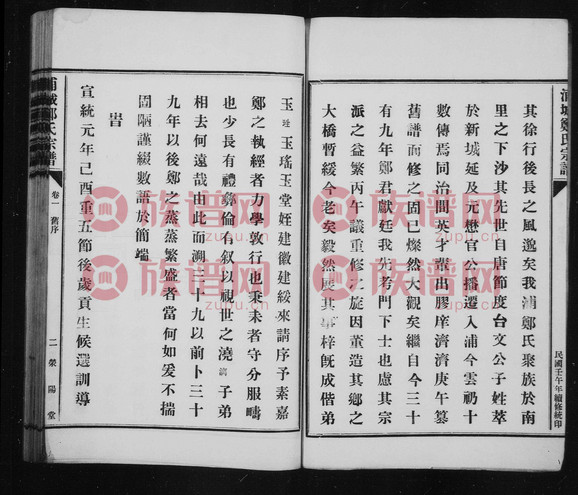 浦城鄭氏宗譜
其徐行後長之風邈矣我浦鄭氏聚族於南
里之下沙其先世自唐節度台文公子姓萃
於新城延及元懋官公播遷入浦今雲礽十
數傳焉同治間英才輩出膠庠濟濟庚午纂
舊譜而修之固已燦然大觀矣繼自今三十
有九年鄭君獻廷我先考門下士也慮其宗
派之益繁丙午議重修之旋因董造其鄉之
大橋暫緩今老矣毅然展其事梓既成偕弟
民國壬午年續修統印
玉廷玉瑤玉堂姪建徽建綏來請序予素嘉
鄭之執經者力學敦行也秉耒者守分服疇
也少長有禮彝倫有叙以視世之澆漓子弟
相去何遠哉由此而溯三十九以前卜三十
九年以後鄭之蒸蒸繁盛者當何如爰不揣
固陋謹綴數語於簡端
旹
宣統元年己酉重五節後歲貢生候選訓導
浦城鄭氏宗譜
卷一
舊序
二
滎陽堂
族谱网
zupu.cn
族谱网
zupu.cn
族谱网
zupu.cn
族谱网
zupu.cn